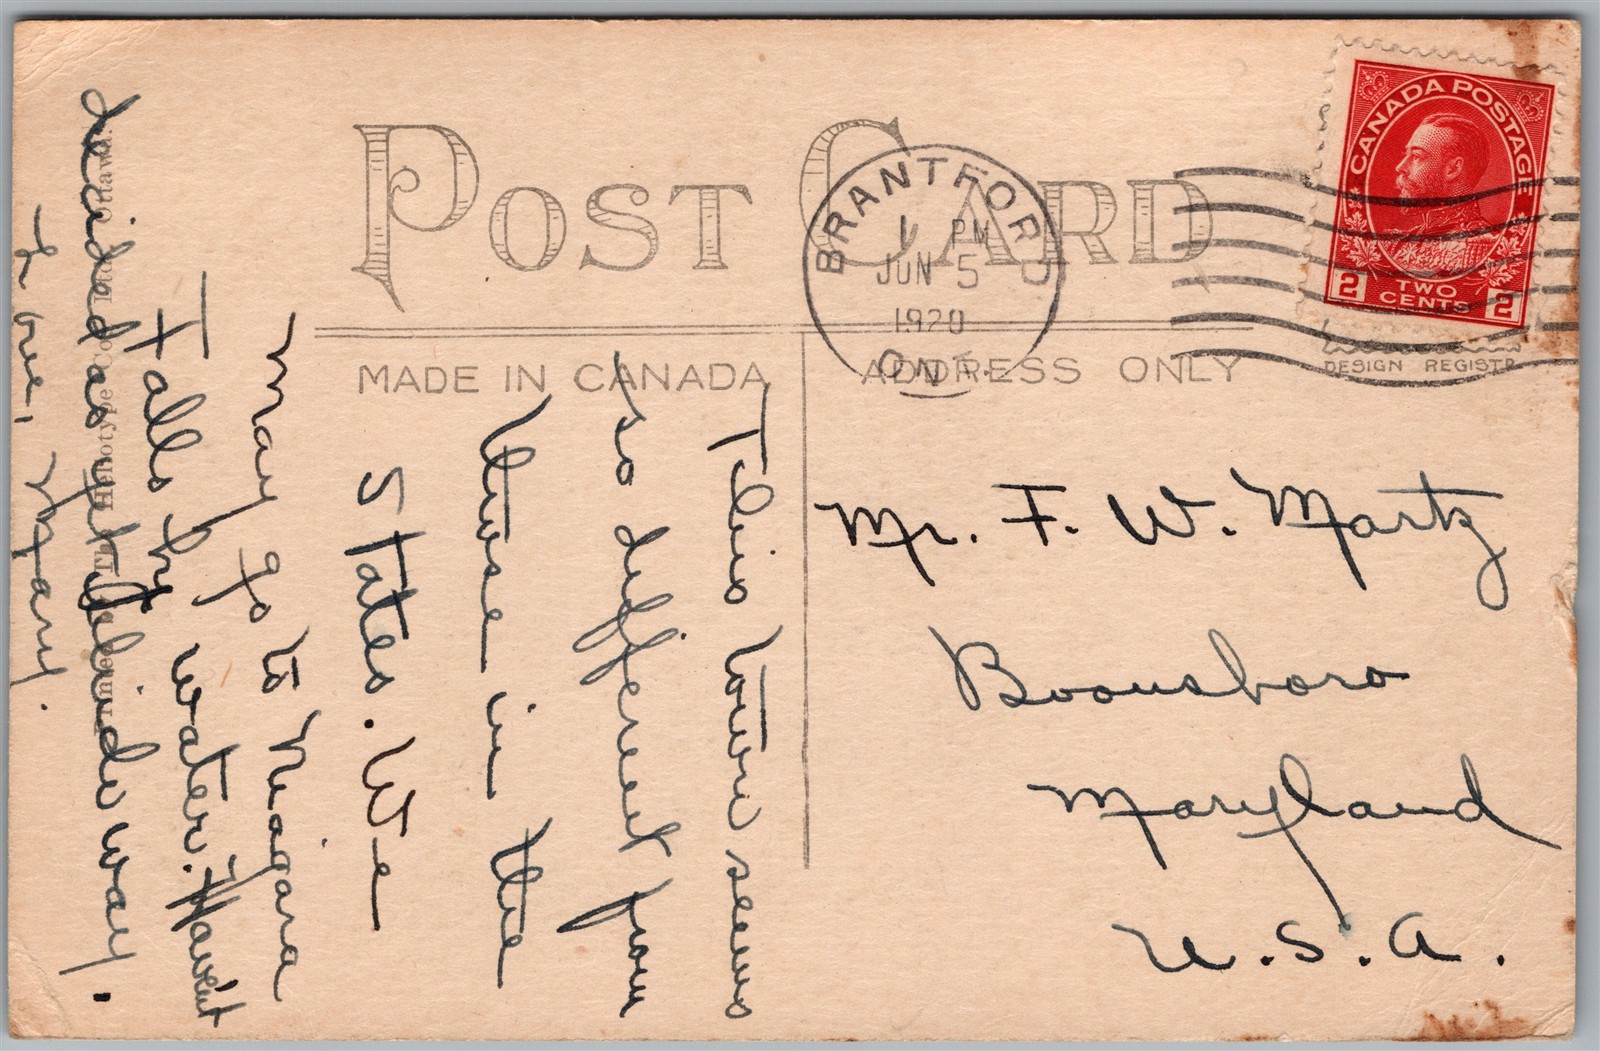 POST CARD
CANADA POSTAGE
2 TWO CENTS 2
BRANTFORD
1 PM
JUN 5
1920
ONT.
MADE IN CANADA
ADDRESS ONLY
DESIGN REGISTD
This town seems
so different from
those in the
States. We
may go to Niagara
Falls by water. Haven't
decided as yet
way.
Love,
Mary.
Mr. F. W. Martz
Boonsboro
Maryland
U.S.A.
Heliotype Co.
Ottawa.